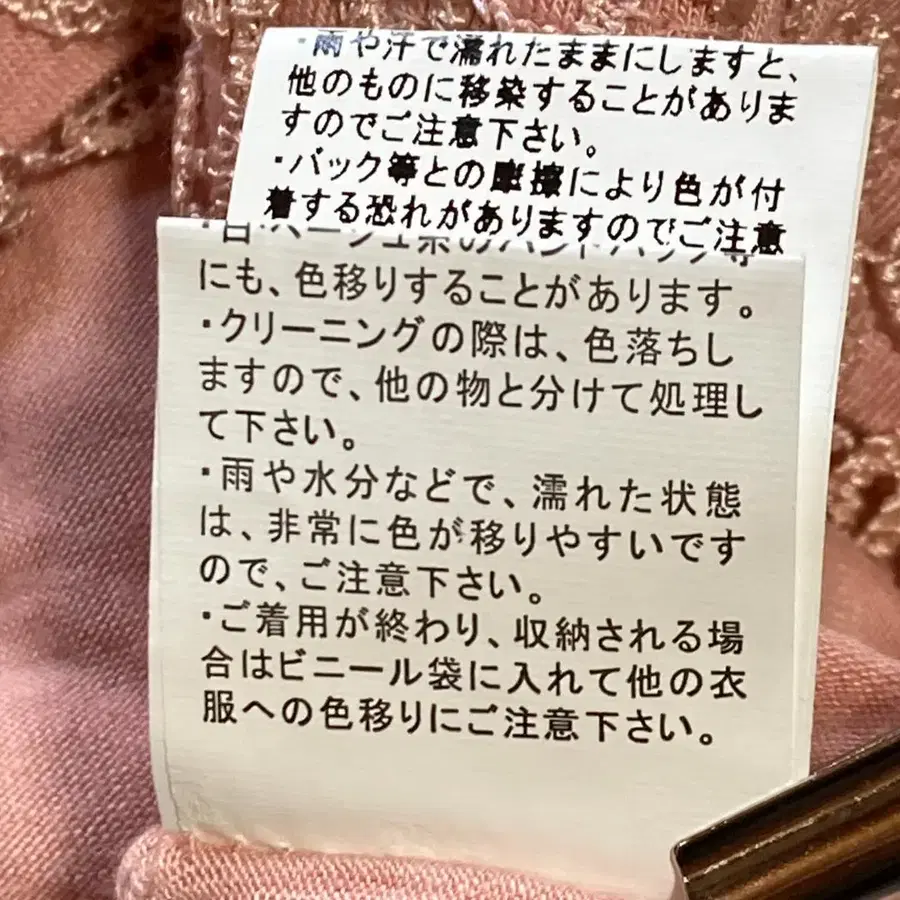 ・雨や汗で濡れたままにしますと、
他のものに移染することがありま
すのでご注意下さい。
・バック等との摩擦により色が付
着する恐れがありますのでご注意
・白・ベージュ系のハンドバック等
にも、色移りすることがあります。
・クリーニングの際は、色落ちし
ますので、他の物と分けて処理し
て下さい。
・雨や水分などで、濡れた状態
は、非常に色が移りやすいです
ので、ご注意下さい。
・ご着用が終わり、収納される場
合はビニール袋に入れて他の衣
服への色移りにご注意下さい。